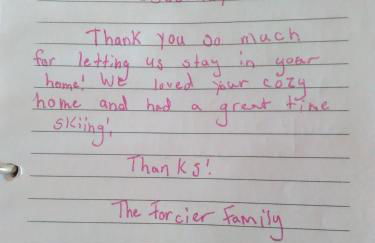 Thank you so much
for letting us stay in your
home! We loved your cozy
home and had a great time
skiing!
Thanks!
The Forcier Family